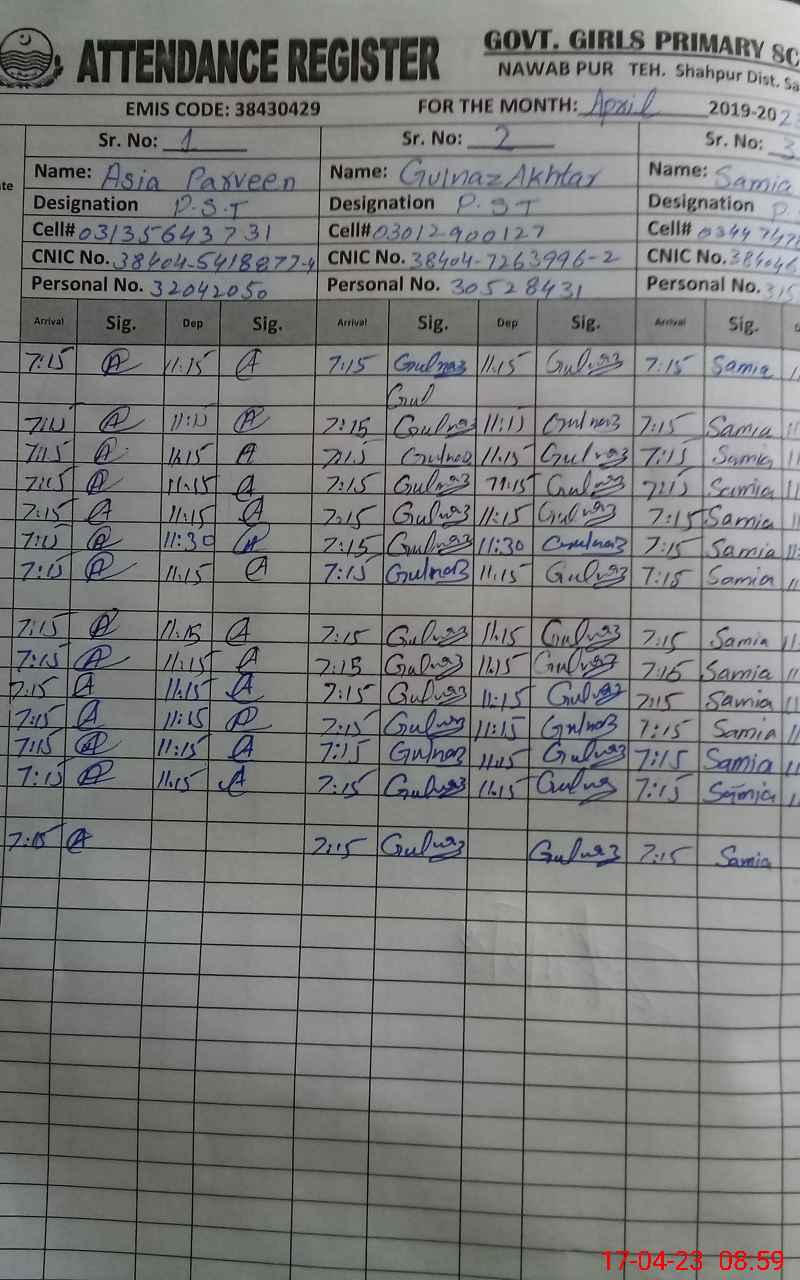 ATTENDANCE REGISTER GOVT. GIRLS PRIMARY SC
NAWAB PUR TEH. Shahpur Dist. Sa
EMIS CODE: 38430429 FOR THE MONTH: April 2019-2023
Sr. No: 1 Sr. No: 2 Sr. No: 3
Name: Asia Parveen Name: Gulnaz Akhtar Name: Samia
Designation P.S.T Designation P.S.T Designation P.
Cell# 03135643731 Cell# 03012900127 Cell# 03447
CNIC No. 38404-5418877-4 CNIC No. 38404-7263996-2 CNIC No. 384046
Personal No. 32042050 Personal No. 30528431 Personal No. 315
ate Arrival Sig. Dep Sig. Arrival Sig. Dep Sig. Arrival Sig.
7:15 A 11:15 A 7:15 Gulnaz 11:15 Gulnaz 7:15 Samia 11
Gul
7:15 A 11:15 A 7:15 Gulnaz 11:15 Gulnaz 7:15 Samia 11
7:15 A 11:15 A 7:15 Gulnaz 11:15 Gulnaz 7:15 Samia 11
7:15 A 11:15 A 7:15 Gulnaz 11:15 Gulnaz 7:15 Samia 11
7:15 A 11:15 A 7:15 Gulnaz 11:15 Gulnaz 7:15 Samia 11
7:15 A 11:30 A 7:15 Gulnaz 11:30 Gulnaz 7:15 Samia 11:
7:15 A 11:15 A 7:15 Gulnaz 11:15 Gulnaz 7:15 Samia 11
7:15 A 11:15 A 7:15 Gulnaz 11:15 Gulnaz 7:15 Samia 11
7:15 A 11:15 A 7:15 Gulnaz 11:15 Gulnaz 7:15 Samia 11
7:15 A 11:15 A 7:15 Gulnaz 11:15 Gulnaz 7:15 Samia 11
7:15 A 11:15 A 7:15 Gulnaz 11:15 Gulnaz 7:15 Samia 11
7:15 A 11:15 A 7:15 Gulnaz 11:15 Gulnaz 7:15 Samia 11
7:15 A 11:15 A 7:15 Gulnaz 11:15 Gulnaz 7:15 Samia 11
7:15 A 7:15 Gulnaz Gulnaz 7:15 Samia
17-04-23 08:59